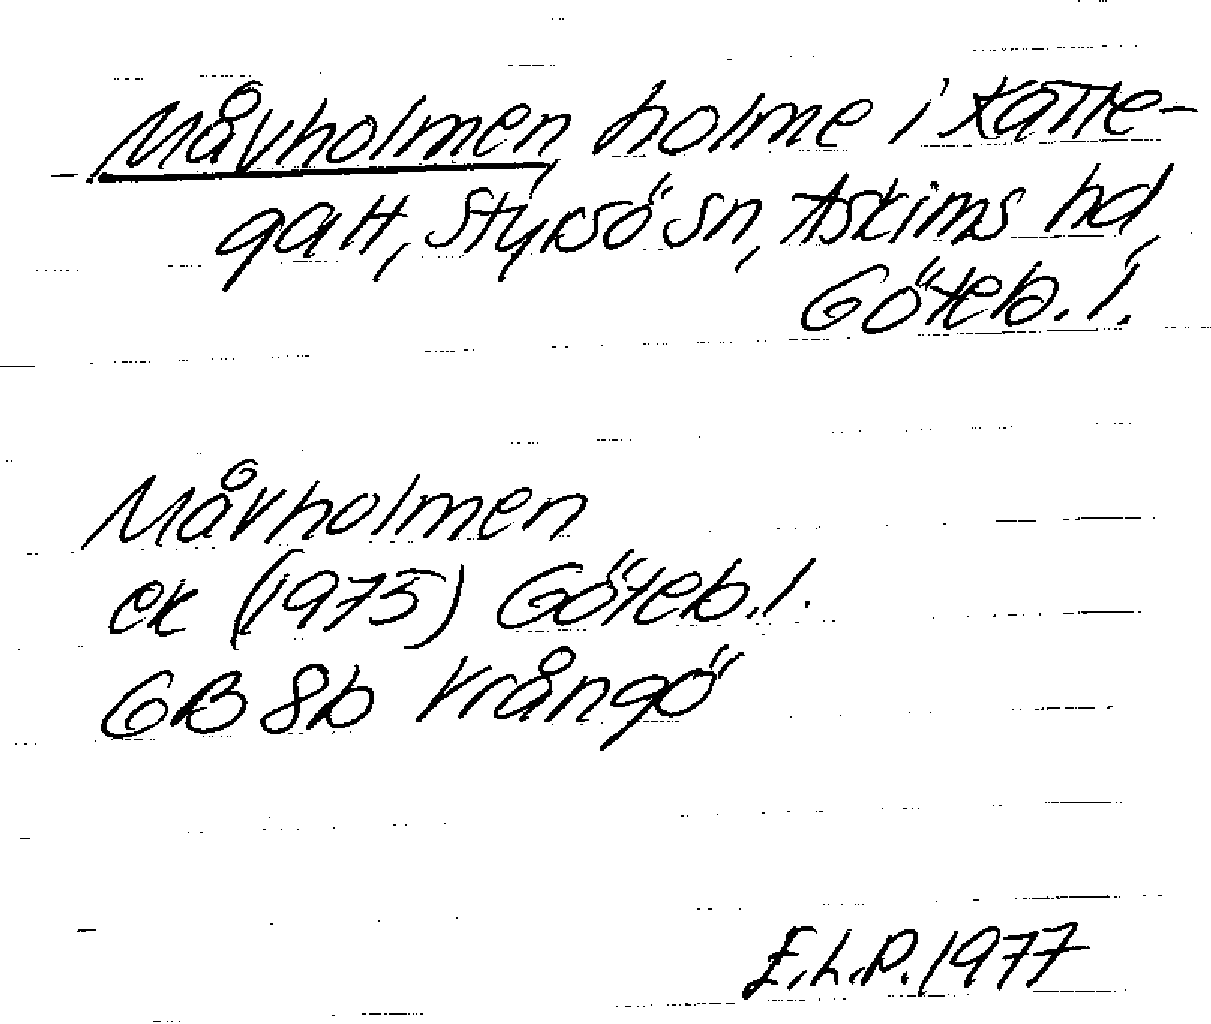 Måvholmen, holme i Katte-
gatt, Styrsö sn, Askims hd,
Göteb. l.
Måvholmen
ek (1975) Göteb. l.
GB 8b Vrångö
E.L.P. 1977